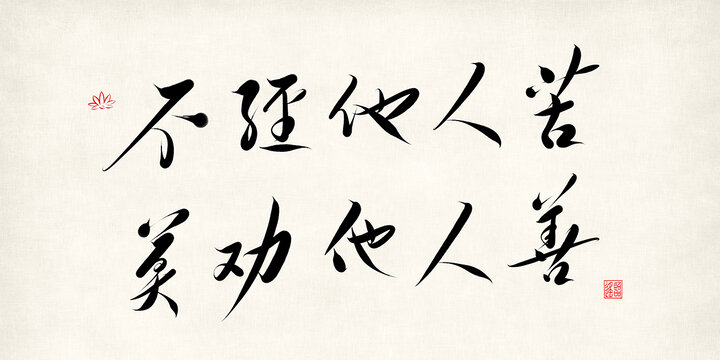 不經他人苦
莫劝他人善